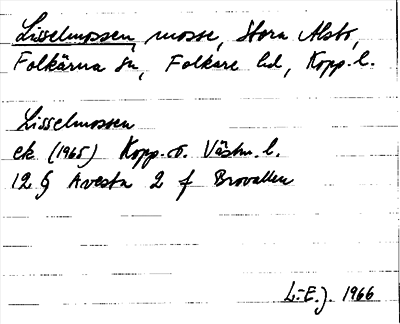 Lisselmossen, mosse, Stora Alsbo,
Folkärna sn, Folkare hd, Kopp. l.
Lisselmossen
ek (1965) Kopp. o. Västm. l.
12 G Avesta 2 f Brovallen
L-E. J. 1966